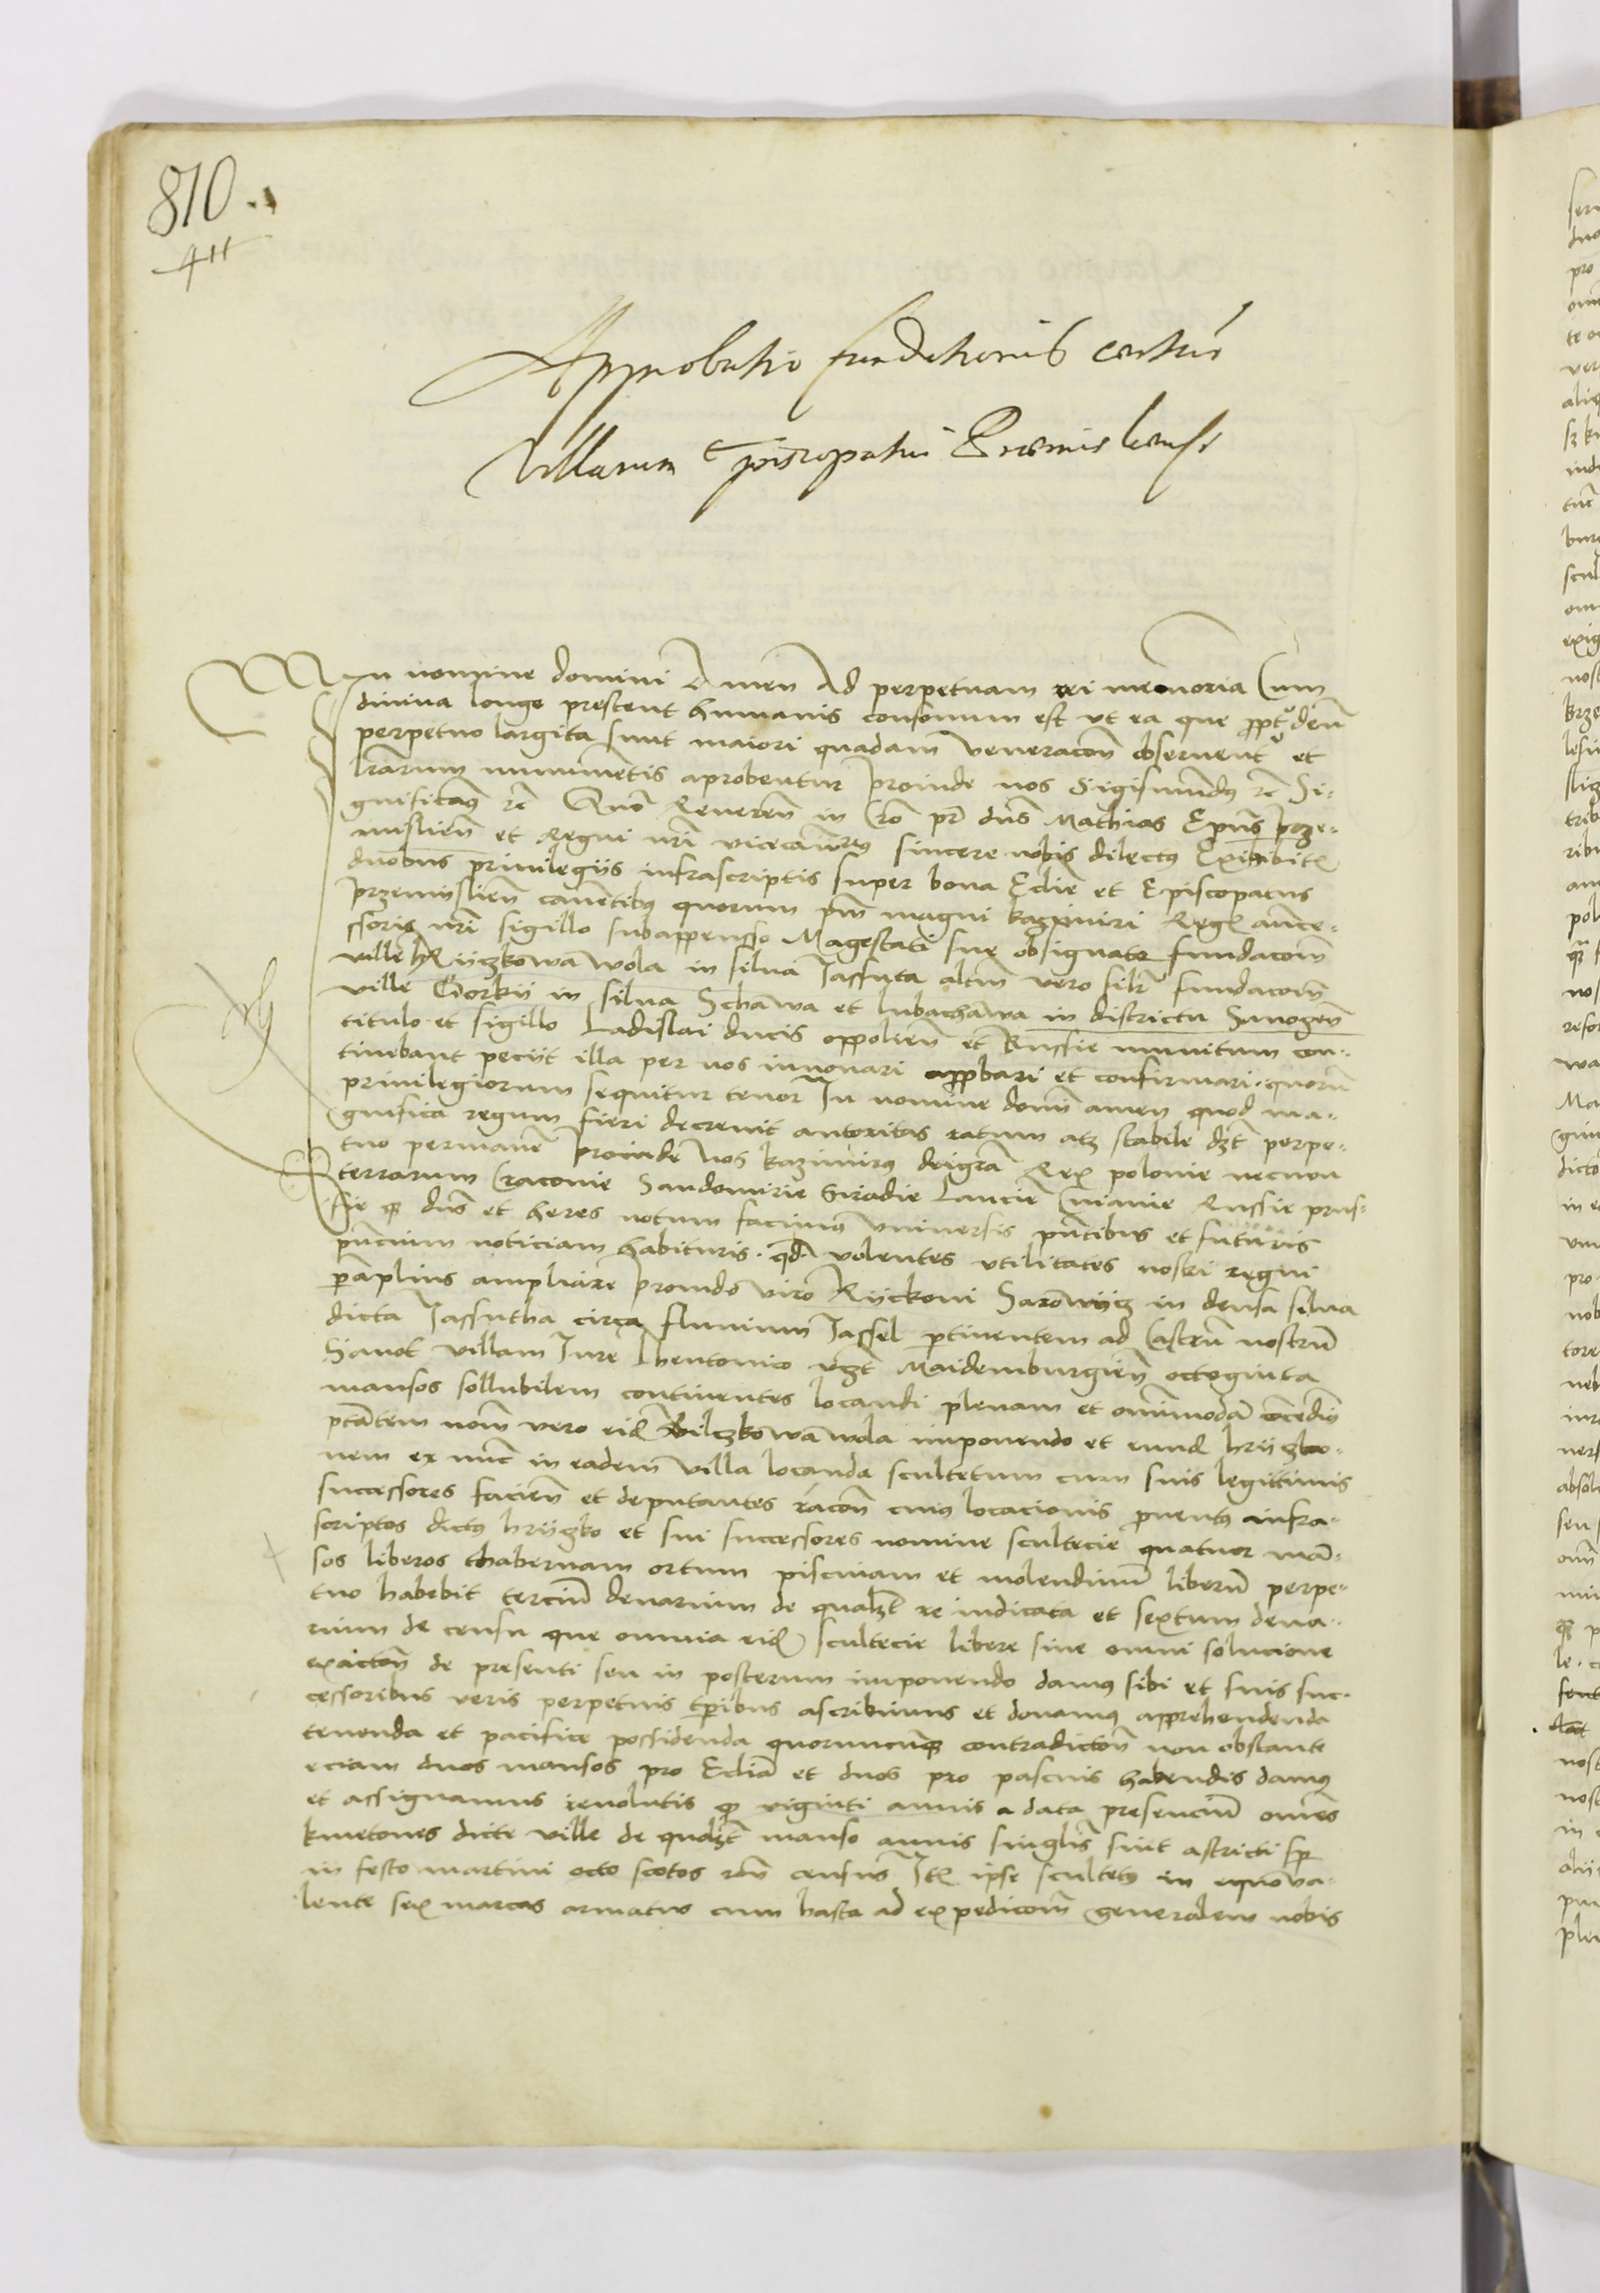 810.
411
Approbatio fundationis certarum
Villarum Episcopatus Premisliensis
In nomine domini Amen Ad perpetuam rei memoria Cum
divina longe prestent humanis consonum est ut ea que propt deum
perpetuo largita sunt maiori quadam veneracon observent et
lrarum munimentis aprobentur Proinde nos Sigismundus rc Si-
gnificamus rc Quo Reveren in Cro pr dns Mathias Epus Prze-
mislien et Regni nri vicecancrius sincere nobis dilectus Exhibitis
duobus privilegiis infrascriptis super bona Eclie et Episcopatus
Przemislien caventibus quorum pm magni kazimiri Regis ance-
ssoris nri sigillo subappensso Magestati sue obsignato fundacom
ville hRiiczkowa wola in silva Jassuta altm vero silr fundacom
ville Gorkii in silva Schawa et lubachawa in districtu Sanozen
titulo et sigillo Ladislai ducis oppolien et Russie munitum con-
tinebant peciit illa per nos innovari approbari et confirmari. quoru
privilegiorum sequitur tenor In nomine domi amen quod ma-
gnifica regum fieri decrevit autoritas ratum atz stabile dzt perpe-
tuo permane Proinde Nos kazimirus deigra Rex polonie necnon
terrarum Cracovie Sandomirie Siradie Lancie Cuiavie Russie prus-
sie q dns et heres notum facimus universis pntibus et futuris
pncium noticiam habituris. qd volentes utilitates nostri regni
peraplius ampliare provido viro Riickoni Sarowiiz in densa silva
dicta Jassutha circa fluvium Jassel ptinentem ad Castru nostru
Sanok villam Jure thentonico uzt Maidemburgien octoginta
mansos sollubilem continentes locandi plenam et omimoda concedim
ptatem nom vero eid hilczkowa wola imponendo et eund hriizko-
nem ex nunc in eadem villa locanda scultetum cum suis legittimis
successores facien et deputantes racon cuius locacionis proventus infra-
scriptos dictus hriizko et sui successores nomine scultecie quatuor man-
sos liberos thabernam ortum piscinam et molendinum liberu perpe-
tuo habebit terciu denarium de qualzt re iudicata et sextum dena-
rium de censu que omnia eid scultecie libere sine omni solucione
exacton de presenti seu in posterum imponendo damus sibi et suis suc-
cessoribus veris perpetuis tpibus ascribimus et donamus apprehendenda
tenenda et pacifice possidenda quorumcunq contradicton non obstante
eciam duos mansos pro Eclia et duos pro pascuis habendis damus
et assignamus revolutis q viginti annis a data presenciu omes
kmetones dicte ville de qudlzt manso annis singlis sint astricti sp
in festo martini octo scotos ron census Ite ipse scultetus in equo va-
lente sex marcas armatus cum hasta ad expedicom generalem nobis